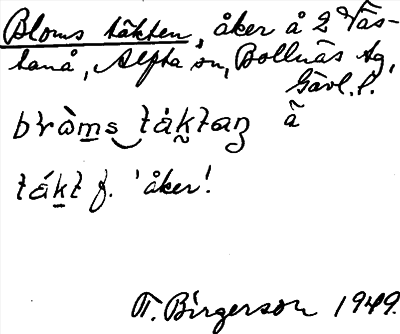 Bloms täkten, åker å 2 Väs-
tanå, Alfta sn, Bollnäs tg,
Gävl. l.
bròm̲s‿tàk̰taŋ ã
ták̲t f. 'åker'.
T. Birgerson 1949.